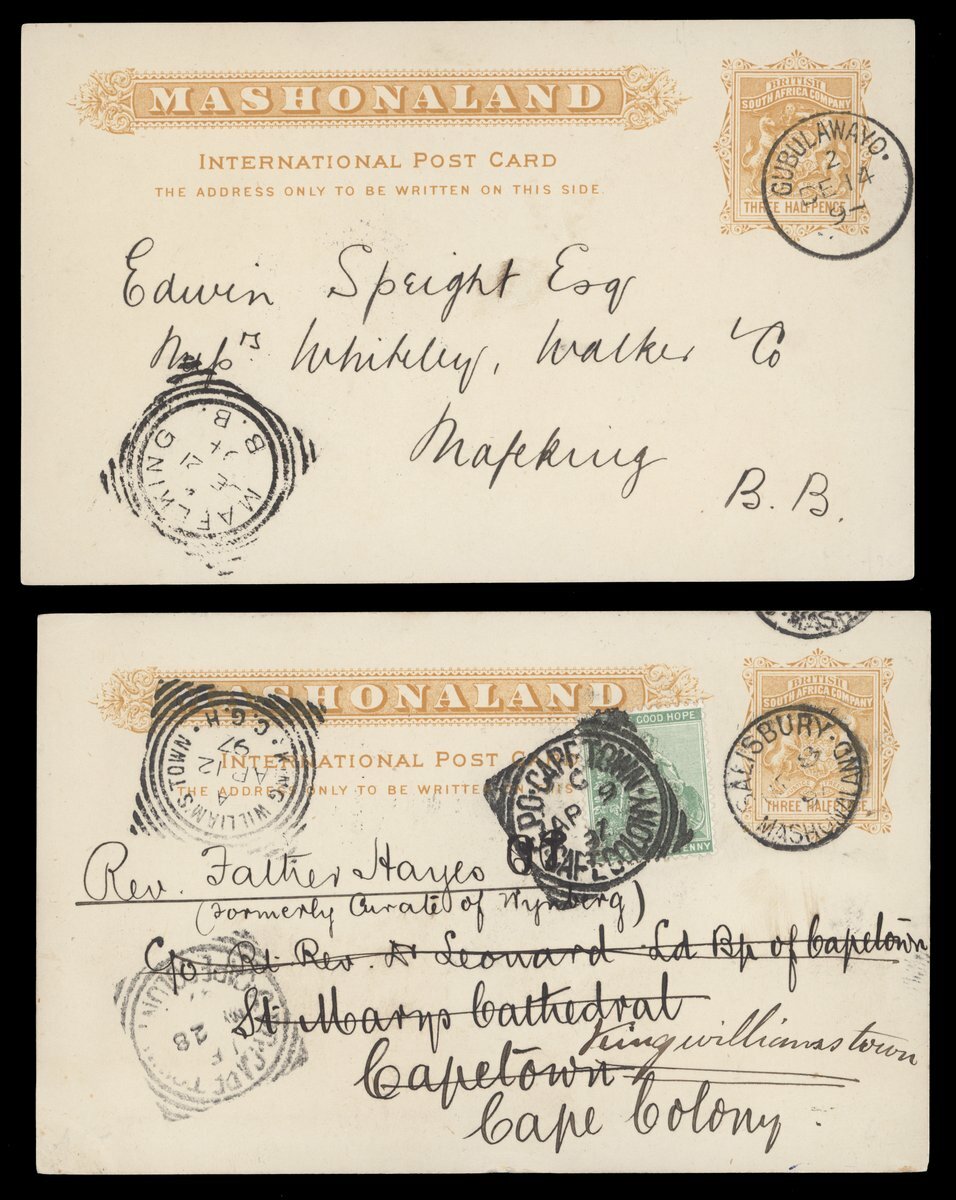 MASHONALAND
INTERNATIONAL POST CARD
THE ADDRESS ONLY TO BE WRITTEN ON THIS SIDE.
BRITISH
SOUTH AFRICA COMPANY
THREE HALFPENCE
GUBULAWAYO.
2
DE 14
97
Edwin Speight Esq
Messrs Whiteley, Walker & Co
Mafeking
B. B.
MAFEKING
B.B.
21
MASHONALAND
INTERNATIONAL POST
THE ADDRESS ONLY TO BE WRITTEN ON THIS
BRITISH
SOUTH AFRICA COMPANY
THREE HALFPENCE
SALISBURY.
MASHONALAND
GOOD HOPE
PENNY
G.P.O. CAPE TOWN.
CAPE COLONY
AP
KING WILLIAMSTOWN. C.G.H.
A
AP 12
97
Rev. Father Hayes
(Formerly Curate of Wynberg)
C/o Rt Rev. Dr Leonard Ld Bp of Capetown
St Marys Cathedral
Kingwilliamstown
Capetown
Cape Colony.
CAPE TOWN
28